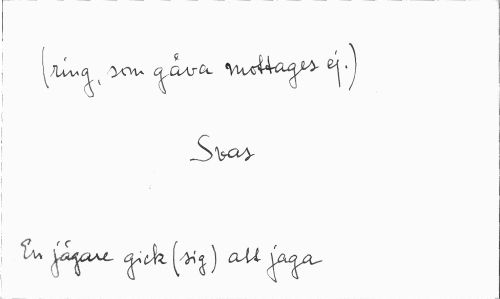 (ring, som gåva mottages ej.)
Svas
En jägare gick (sig) att jaga